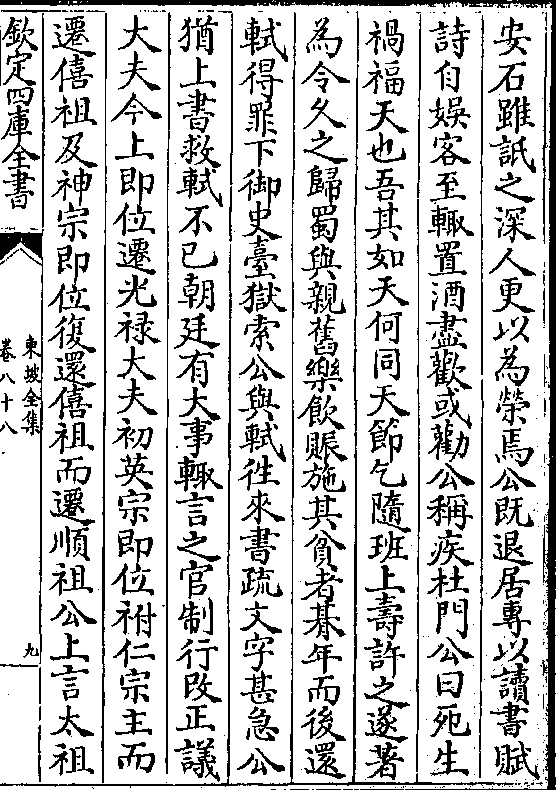 安石雖詆之深人更以為榮焉公既退居專以讀書賦
詩自娛客至輒置酒盡歡或勸公稱疾杜門公曰死生
禍福天也吾其如天何同天節乞隨班上壽許之遂著
為令久之歸蜀與親舊樂飲賑施其貧者朞年而後還
軾得罪下御史臺獄索公與軾往來書疏文字甚急公
猶上書救軾不已朝廷有大事輒言之官制行改正議
大夫今上即位遷光禄大夫初英宗即位祔仁宗主而
遷僖祖及神宗即位復還僖祖而遷順祖公上言太祖
欽定四庫全書
東坡全集
卷八十八
九